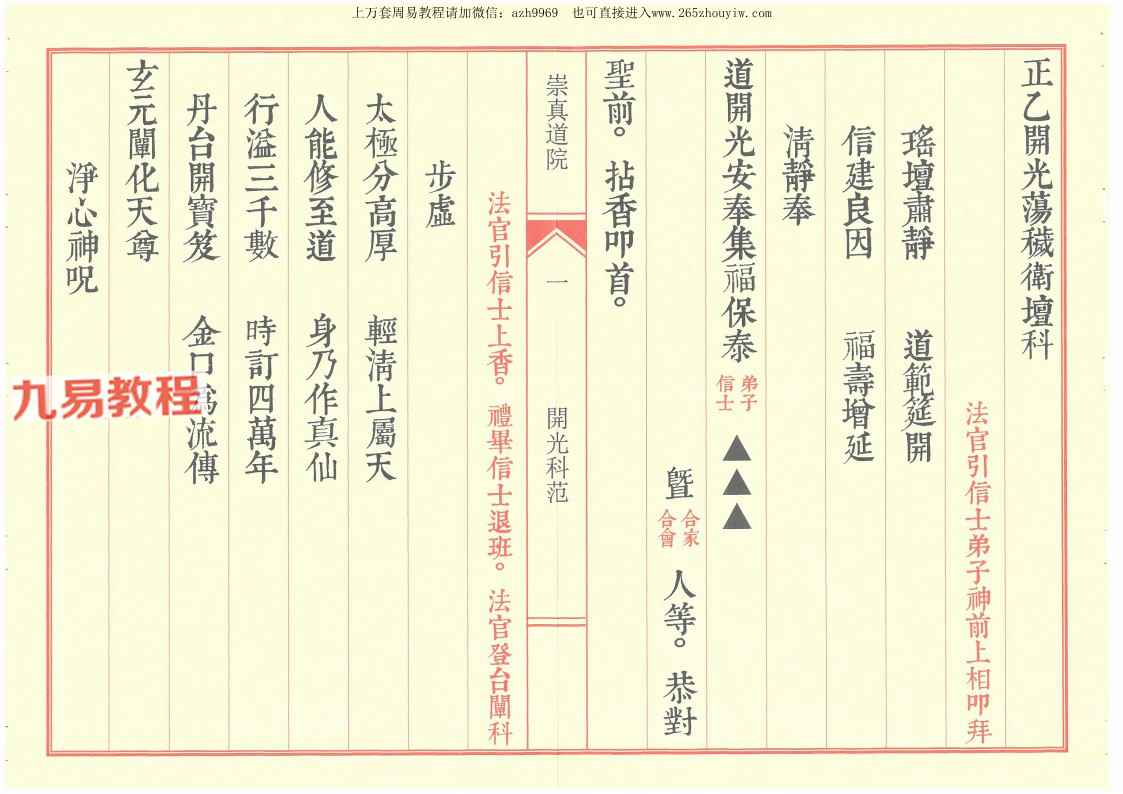 上万套周易教程请加微信：azh9969　也可直接进入www.265zhouyiw.com
正乙開光蕩穢衛壇科
法官引信士弟子神前上相叩拜
瑤壇肅靜　道範筵開
信建良因　福壽增延
清靜奉
道開光安奉集福保泰 弟子 信士 ▲▲▲
暨 合家 合會 人等。恭對
聖前。拈香叩首。
崇真道院　一　開光科范
法官引信士上香。禮畢信士退班。法官登台闡科
步虛
太極分高厚　輕清上屬天
人能修至道　身乃作真仙
行溢三千數　時訂四萬年
丹台開寶笈　金口為流傳
玄元闡化天尊
淨心神呪
九易教程